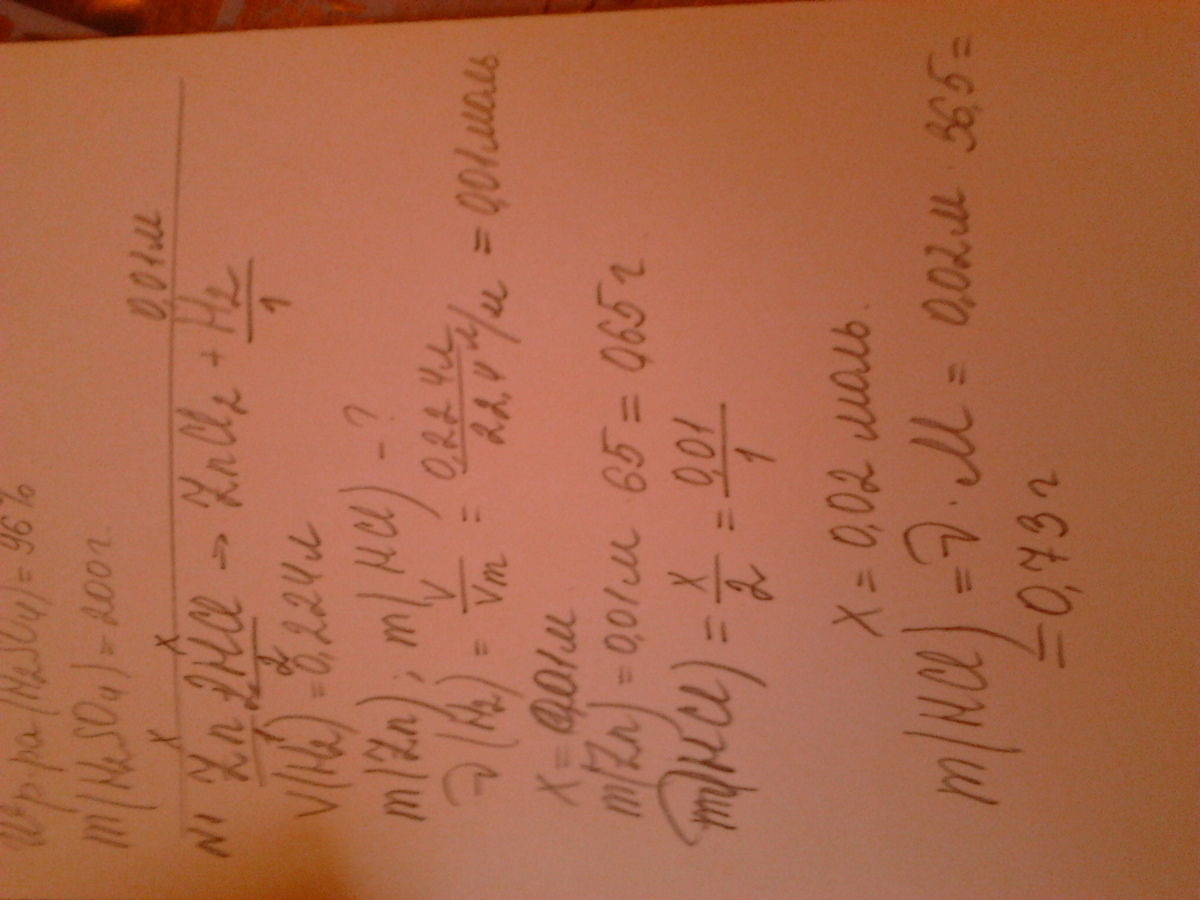 W р-ра (H₂SO₄) = 96%
m (H₂SO₄) = 200 г.
x x 0,01 м
N1 Zn + 2HCl → ZnCl₂ + H₂
1 2 1
V(H₂) = 0,224 л
m(Zn); m(HCl) - ?
ν(H₂) = V/Vm = 0,224 л / 22,4 л/м = 0,01 моль
x = 0,01 м.
m(Zn) = 0,01 м · 65 = 0,65 г
m(HCl) = x/2 = 0,01/1
x = 0,02 моль.
m(HCl) = ν · M = 0,02 м · 36,5 =
= 0,73 г